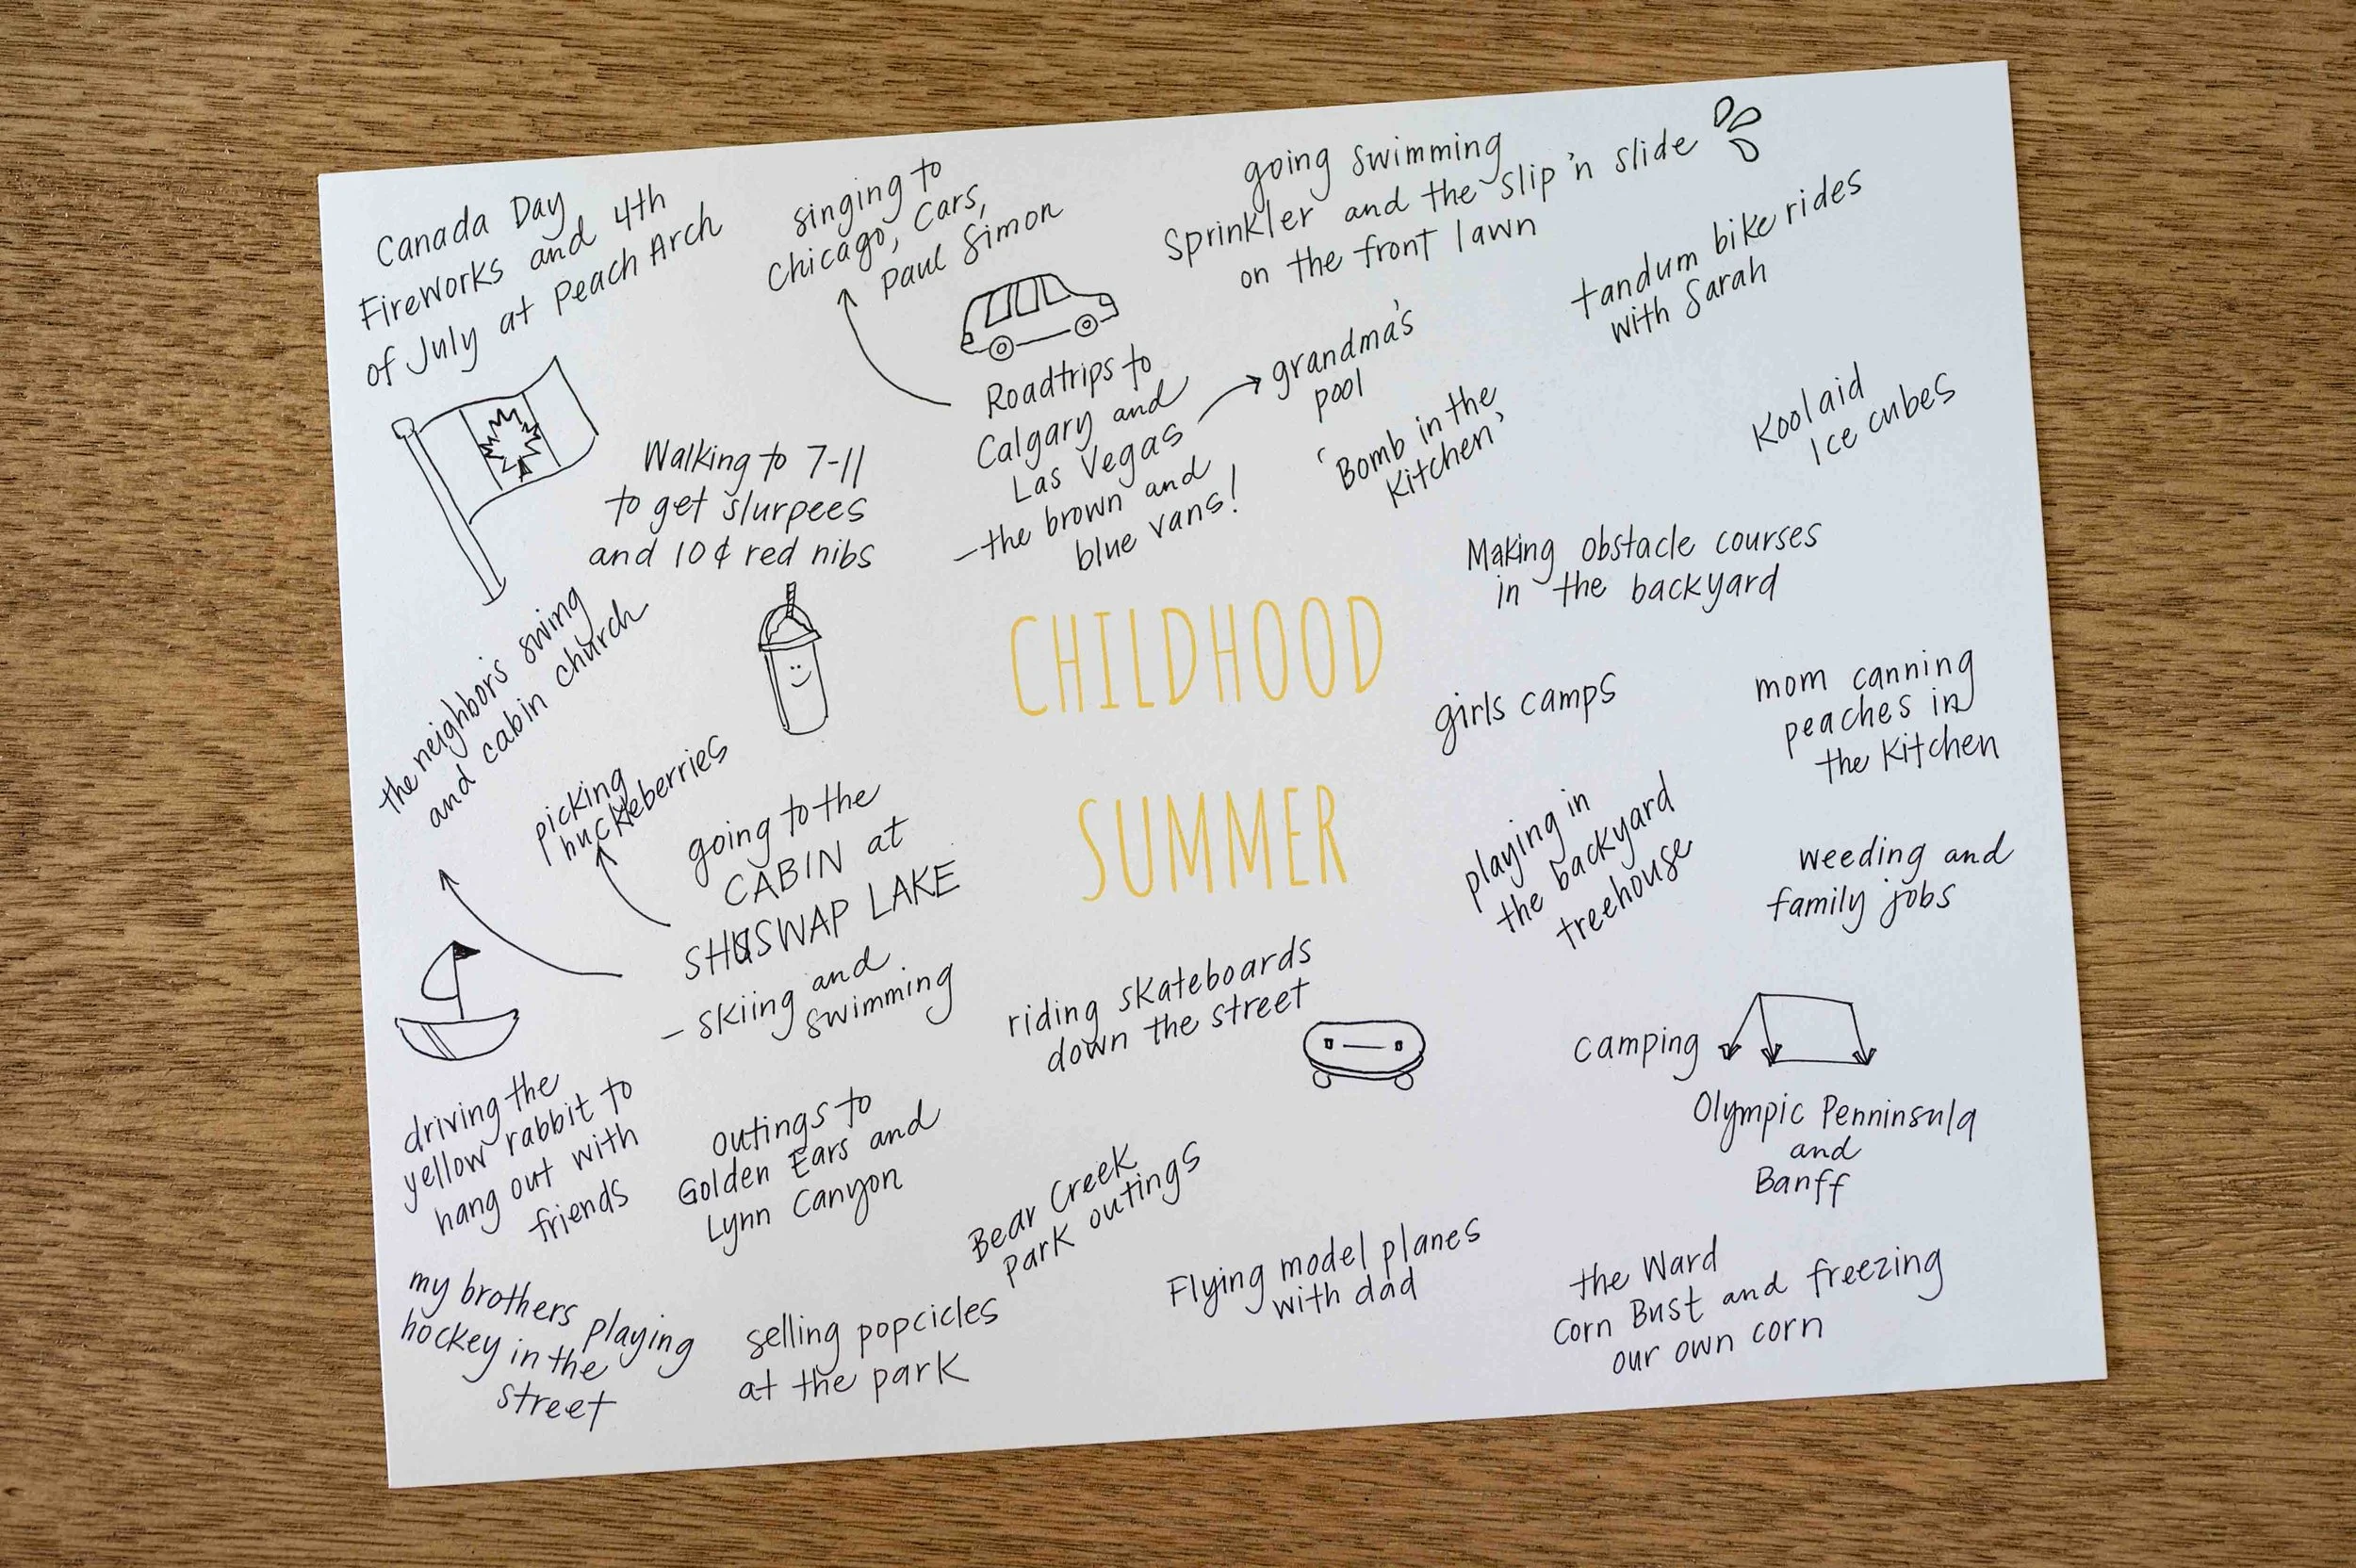 Canada Day
Fireworks and 4th
of July at Peach Arch
singing to
Chicago, Cars,
Paul Simon
going swimming
Sprinkler and the slip 'n slide
on the front lawn
tandum bike rides
with Sarah
Roadtrips to
Calgary and
Las Vegas
- the brown and
blue vans!
grandma's
pool
'Bomb in the
Kitchen'
Koolaid
Ice cubes
Walking to 7-11
to get slurpees
and 10¢ red nibs
Making obstacle courses
in the backyard
the neighbor's swing
and cabin church
CHILDHOOD
SUMMER
girls camps
mom canning
peaches in
the Kitchen
picking
huckleberries
going to the
CABIN at
SHUSWAP LAKE
- skiing and
swimming
playing in
the backyard
treehouse
weeding and
family jobs
riding skateboards
down the street
camping
Olympic Penninsula
and
Banff
driving the
yellow rabbit to
hang out with
friends
outings to
Golden Ears and
Lynn Canyon
Bear Creek
Park outings
Flying model planes
with dad
the Ward
Corn Bust and freezing
our own corn
my brothers playing
hockey in the
street
selling popcicles
at the park